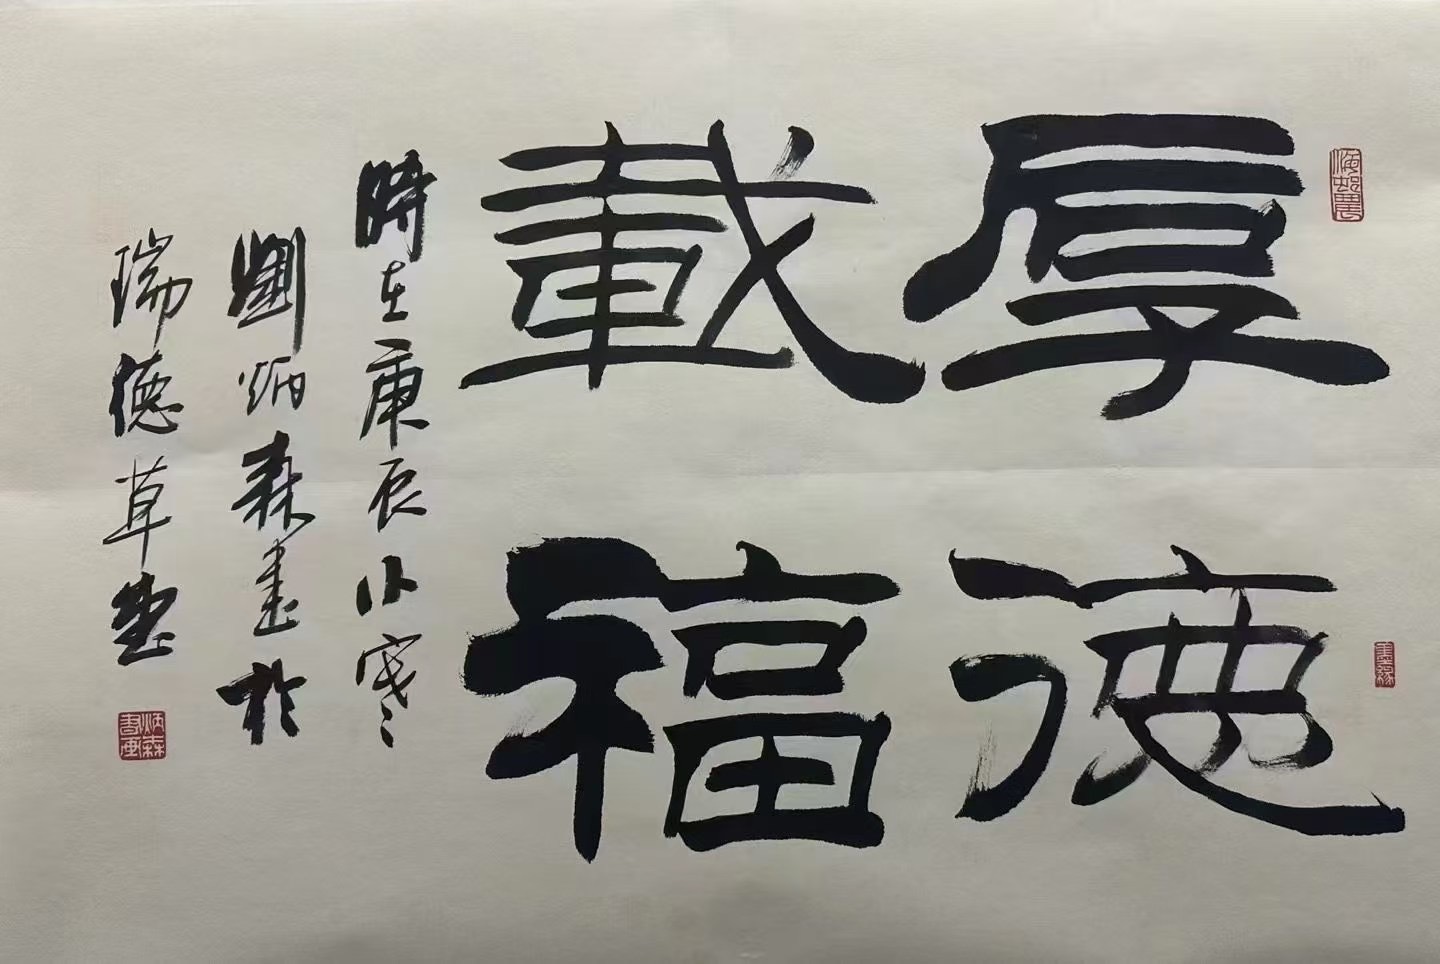 厚德
載福
時在庚辰小寒
劉炳森書於
瑞德草堂
炳森書画